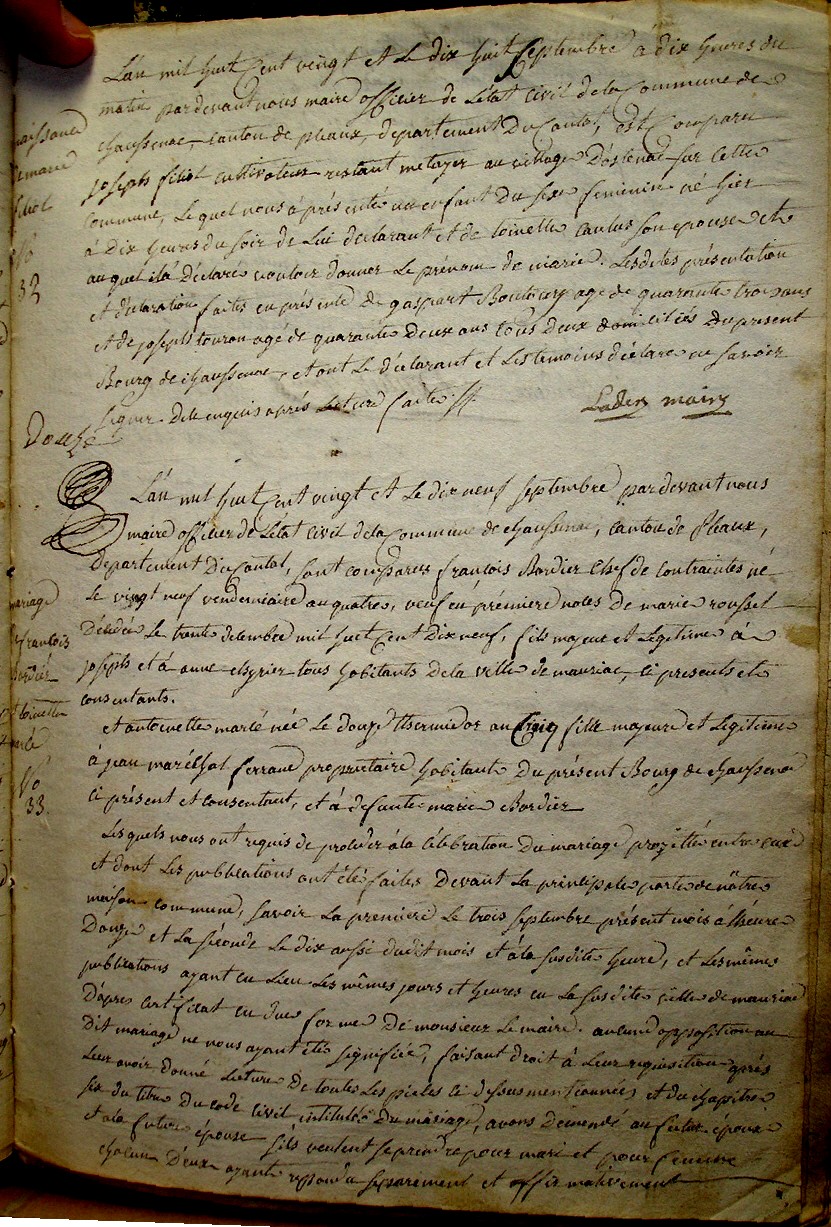 L'an mil huit Cent vingt et Le dix huit Septembre à dix heures du
matin pardevant nous maire officier de L'état Civil de la Commune de
chaussenac, canton de pleaux, departement Du Cantal, est Comparu
joseph filiol cultivateur restant metayer au village D'ostenac sur Cette
Commune, Le quel nous à présenté un enfant Du sexe feminin né hier
à Dix heures du soir de Lui declarant et de toinette son epouse et
au quel il à Déclaré vouloir donner Le prénom de marie. Lesdites présentation
et déclaration faites en présence de gaspart agé de quarante trois ans
et de joseph touron agé de quarante Deux ans tous Deux domiciliés Du present
Bourg de chaussenac, et ont Le déclarant et Les temoins déclaré ne savoir
signer De ce enquis aprés Lecture faite
maire
naissance
filiol
No
32
L'an mil huit Cent vingt et Le dix neuf septembre pardevant nous
maire officier de L'état Civil de la Commune de chaussenac, canton de Pleaux,
Departement Du Cantal, sont comparus françois Bordier Chef de contraintes né
Le vingt neuf vendemiaire an quatre, veuf en prémiere noces De marie roussel
Décédée Le trente decembre mil huit Cent Dix neuf, fils majeur et Légitime à
joseph et à anne tous habitants de la ville de mauriac, ci presents et
consentants.
et antoinette marlé née Le douze thermidor an Cinq fille majeure et Legitime
à jean maréchal ferrant propriétaire habitant Du présent Bourg de chaussenac
ci présent et consentant, et à defunte marie Bordier
Lesquels nous ont requis de proceder à la Célébration Du mariage projetté entre eux
et dont Les publications ont été faites Devant La principale porte de nôtre
maison commune, savoir La premiere Le trois septembre présent mois à L'heure
Douze et La séconde Le dix aussi dudit mois et à la susdite heure, et Les mêmes
publications ayant eu Lieu Les mêmes jours et heures en La susdite ville de mauriac
D'apres certificat en due forme De monsieur Le maire. aucune opposition au
Dit mariage ne nous ayant été signifiée, faisant droit à Leur requisition aprés
Leur avoir donné Lecture De toutes Les pieces ci dessus mentionnées et du chapitre
six du titre Du code Civil intitulé Du mariage, avons Demandé au futur époux
et à la future épouse s'ils veulent se prendre pour mari et pour femme
chacun D'eux ayant repondu separement et affirmativement
mariage
françois
Bordier
toinette
marlé
No
33.